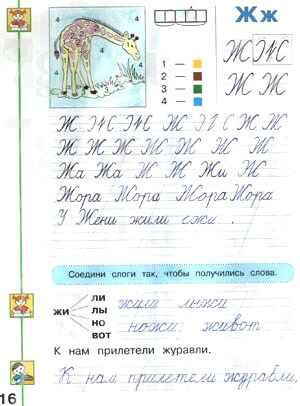 Ж ж
4 4 4 4
1 —
2 —
3 —
4 —
Ж Ж
Ж Ж
Ж Ж Ж Ж Ж Ж
Ж Ж Ж Ж Ж Ж Ж
Жа Жа Ж Ж Жи Ж
Жора Жора Жора Жора
У Жени жили ежи.
Соедини слоги так, чтобы получились слова.
жи
ли жили лыжи
лы
но ножи живот
вот
К нам прилетели журавли.
К нам прилетели журавли.
16